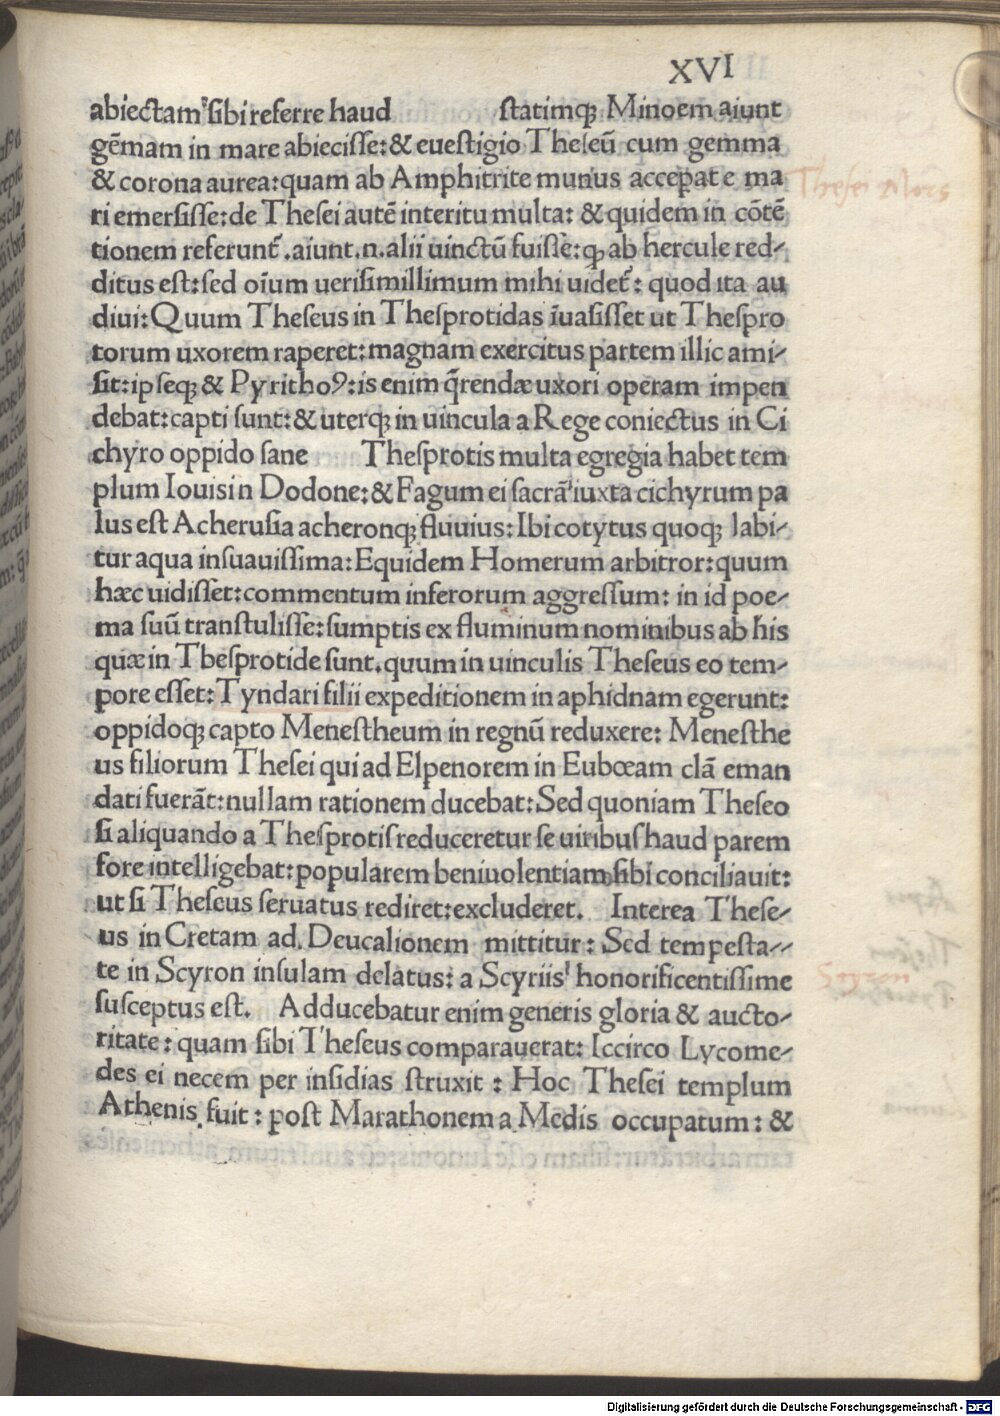 XVI
abiectam sibi referre haud statimq; Minoem aiunt
gēmam in mare abiecisse: & euestigio Theseū cum gemma
& corona aurea: quam ab Amphitrite munus accepat e ma
Thesei Mors
ri emersisse: de Thesei autē interitu multa: & quidem in cōtē
tionem referunt̃. aiunt .n. alii uinctū fuisse: q; ab hercule red-
ditus est: sed oīum uerisimillimum mihi uidet̃: quod ita au
diui: Quum Theseus in Thesprotidas īuasisset ut Thespro
torum uxorem raperet: magnam exercitus partem illic ami-
sit: ipseq; & Pyrithoꝰ: is enim q̄rendæ uxori operam impen
debat: capti sunt: & uterq; in uincula a Rege coniectus in Ci
chyro oppido sane Thesprotis multa egregia habet tem
plum Iouis in Dodone: & Fagum ei sacrā iuxta cichyrum pa
lus est Acherusia acheronq; fluuius: Ibi cotytus quoq; labi-
tur aqua insuauissima: Equidem Homerum arbitror: quum
hæc uidisset: commentum inferorum aggressum: in id poe-
ma suū transtulisse: sumptis ex fluminum nominibus ab his
quæ in Tbesprotide sunt. quum in uinculis Theseus eo tem-
pore esset: Tyndari filii expeditionem in aphidnam egerunt:
oppidoq; capto Menestheum in regnū reduxere: Menesthe
us filiorum Thesei qui ad Elpenorem in Eubœam clā eman
dati fuerāt: nullam rationem ducebat: Sed quoniam Theseo
si aliquando a Thesprotis reduceretur se uiribus haud parem
fore intelligebat: popularem beniuolentiam sibi conciliauit:
ut si Theseus seruatus rediret: excluderet. Interea These-
us in Cretam ad Deucalionem mittitur: Sed tempesta--
te in Scyron insulam delatus: a Scyriis honorificentissime
Scyron
susceptus est. Adducebatur enim generis gloria & aucto-
ritate: quam sibi Theseus comparauerat: Iccirco Lycome-
des ei necem per insidias struxit: Hoc Thesei templum
Athenis fuit: post Marathonem a Medis occupatum: &
Digitalisierung gefördert durch die Deutsche Forschungsgemeinschaft - DFG